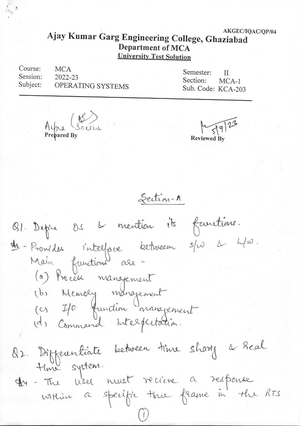 AKGEC/IQAC/QP/04
Ajay Kumar Garg Engineering College, Ghaziabad
Department of MCA
University Test Solution
Course: MCA
Semester: II
Session: 2022-23
Section: MCA-1
Subject: OPERATING SYSTEMS
Sub. Code: KCA-203
5/9/23
Prepared By
Reviewed By
Section-A
Q1. Define OS & mention its functions.
- Provides interface between s/w & h/w.
Main functions are -
(a) Process management
(b) Memory management
(c) I/O function management
(d) Command Interpretation.
Q2. Differentiate between time sharing & Real
time system.
- The user must recieve a response
within a specific time frame in the RTS
1